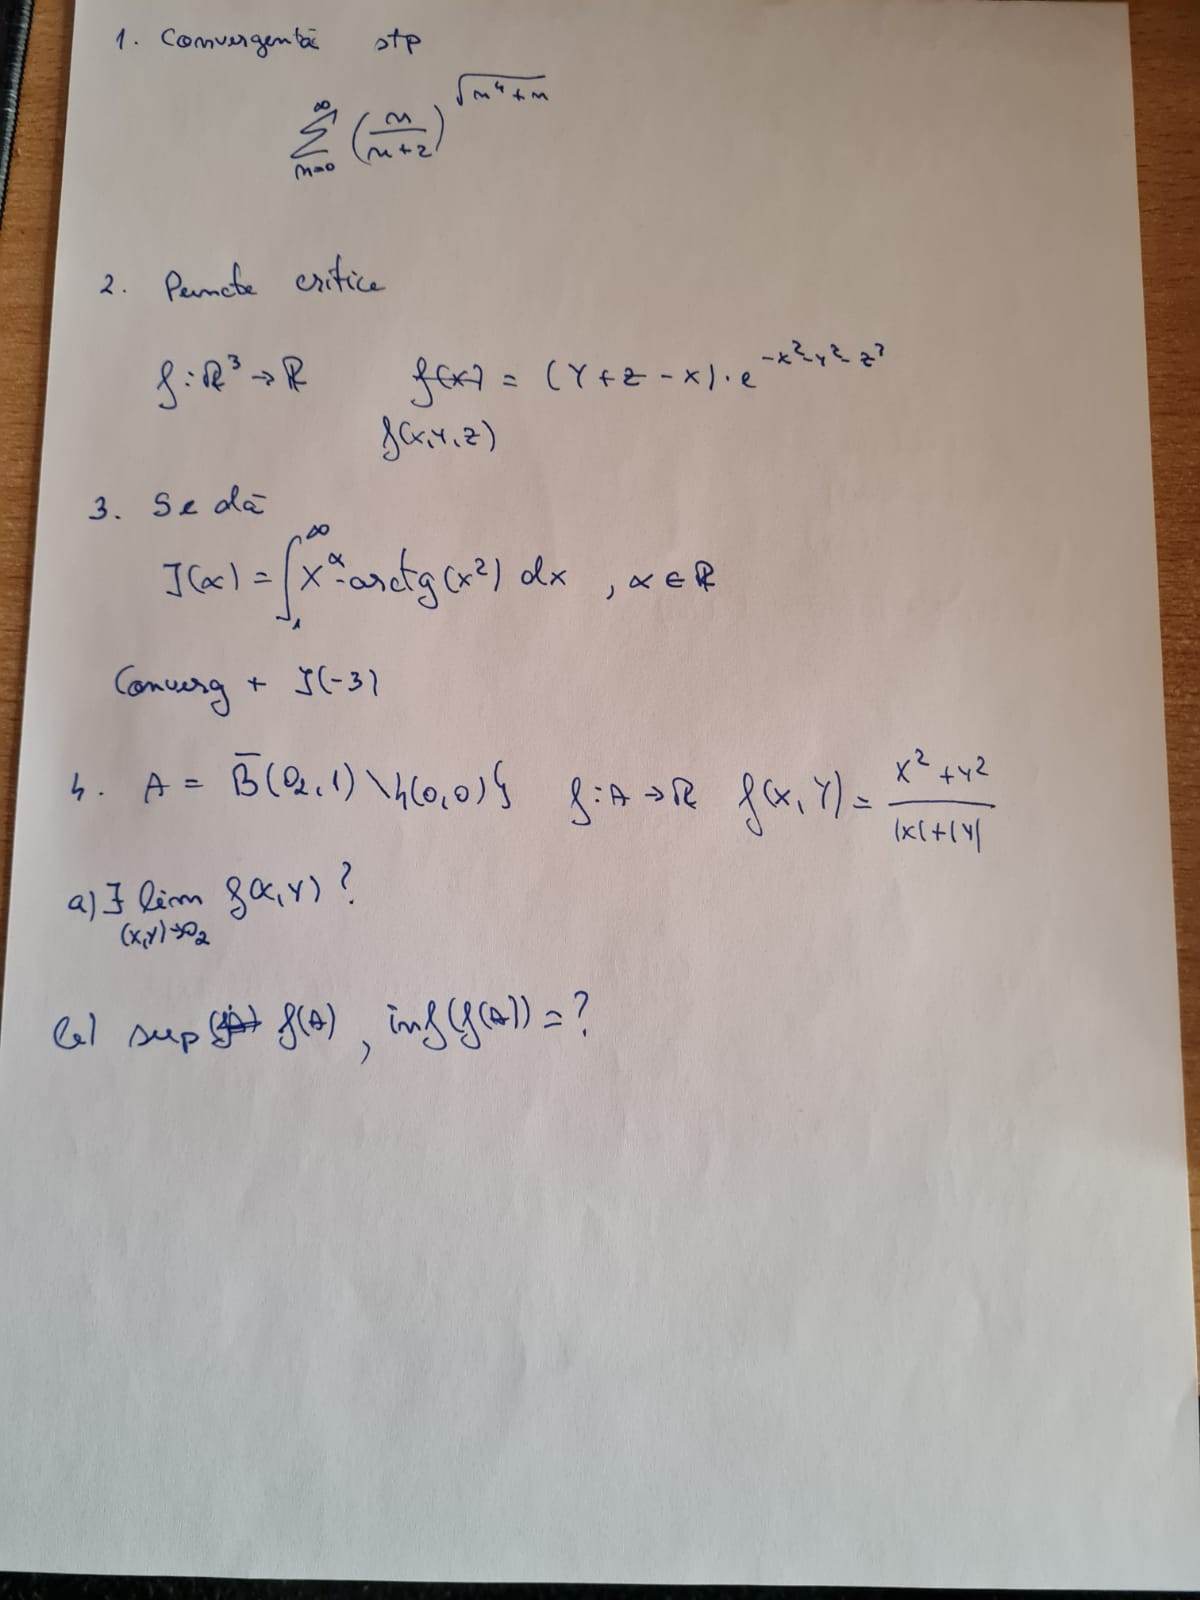 1. Convergentă stp
∞
Σ (n/(n+2))^√(n⁴+n)
n=0
2. Puncte critice
f:ℝ³→ℝ f(x) = (Y+Z-X)·e^(-x²-y²-z²)
f(x,y,z)
3. Se dă
J(α) = ∫₁^∞ x^α·arctg(x²) dx , α∈ℝ
Converg + J(-3)
4. A = B̅(O₂,1)\{(0,0)} f:A→ℝ f(x,y) = (x²+y²)/(|x|+|y|)
a) ∃ lim f(x,y)?
(x,y)→O₂
b) sup f(A), inf(f(A)) = ?